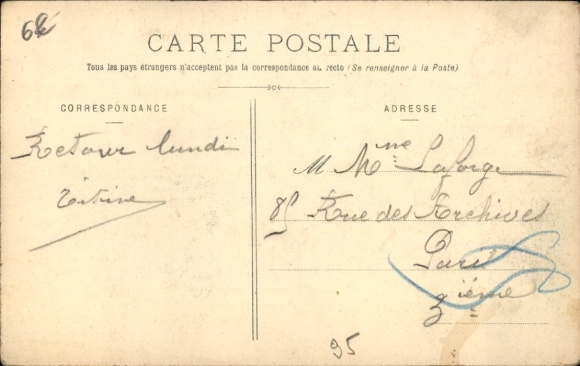 CARTE POSTALE
Tous les pays étrangers n'acceptent pas la correspondance au recto (Se renseigner à la Poste)
CORRESPONDANCE
ADRESSE
Retour lundi
Titine
M Mme Laforge
85 Rue des Archives
Paris
3ième
95